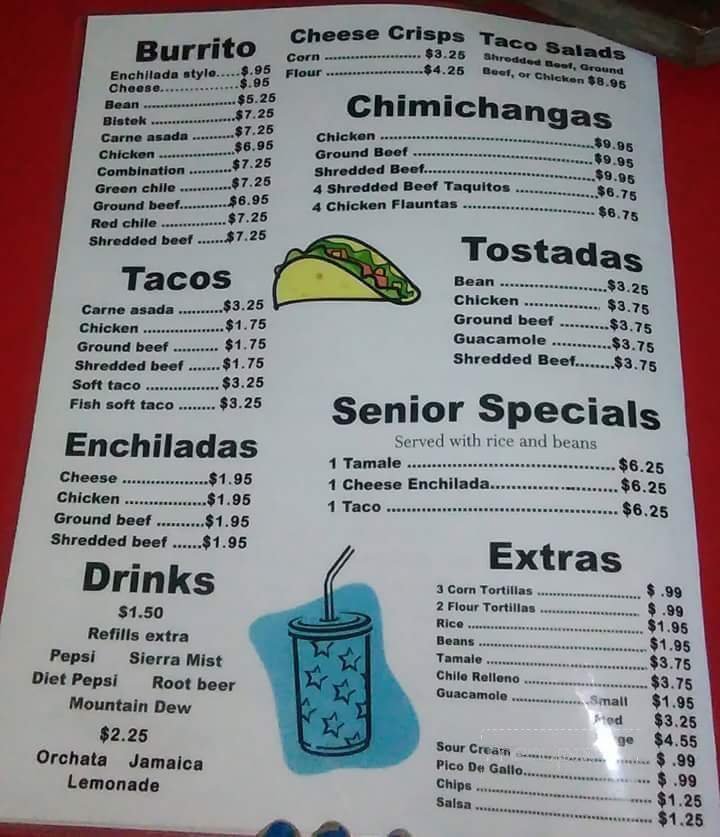 Burrito
Enchilada style.....$.95
Cheese...............$.95
Bean ................$5.25
Bistek ..............$7.25
Carne asada .........$7.25
Chicken .............$6.95
Combination .........$7.25
Green chile .........$7.25
Ground beef..........$6.95
Red chile ...........$7.25
Shredded beef .......$7.25
Tacos
Carne asada ..........$3.25
Chicken .................$1.75
Ground beef .......... $1.75
Shredded beef ....... $1.75
Soft taco ................$3.25
Fish soft taco ........ $3.25
Enchiladas
Cheese ..................$1.95
Chicken .................$1.95
Ground beef ..........$1.95
Shredded beef ......$1.95
Drinks
$1.50
Refills extra
Pepsi Sierra Mist
Diet Pepsi Root beer
Mountain Dew
$2.25
Orchata Jamaica
Lemonade
Cheese Crisps
Corn ........................ $3.25
Flour ........................$4.25
Taco Salads
Shredded Beef, Ground
Beef, or Chicken $8.95
Chimichangas
Chicken ................................................$9.95
Ground Beef .........................................$9.95
Shredded Beef.......................................$9.95
4 Shredded Beef Taquitos ..................$6.75
4 Chicken Flauntas ............................. $6.75
Tostadas
Bean ........................$3.25
Chicken .................. $3.75
Ground beef ...........$3.75
Guacamole .............$3.75
Shredded Beef........$3.75
Senior Specials
Served with rice and beans
1 Tamale .............................................. $6.25
1 Cheese Enchilada............................. $6.25
1 Taco .................................................. $6.25
Extras
3 Corn Tortillas ........................ $ .99
2 Flour Tortillas ........................ $ .99
Rice ..........................................$1.95
Beans ........................................$1.95
Tamale .......................................$3.75
Chile Relleno .............................$3.75
Guacamole ....................Small $1.95
$3.25
$4.55
Sour Cream $ .99
Pico De Gallo............................. $ .99
Chips .........................................$1.25
Salsa .........................................$1.25